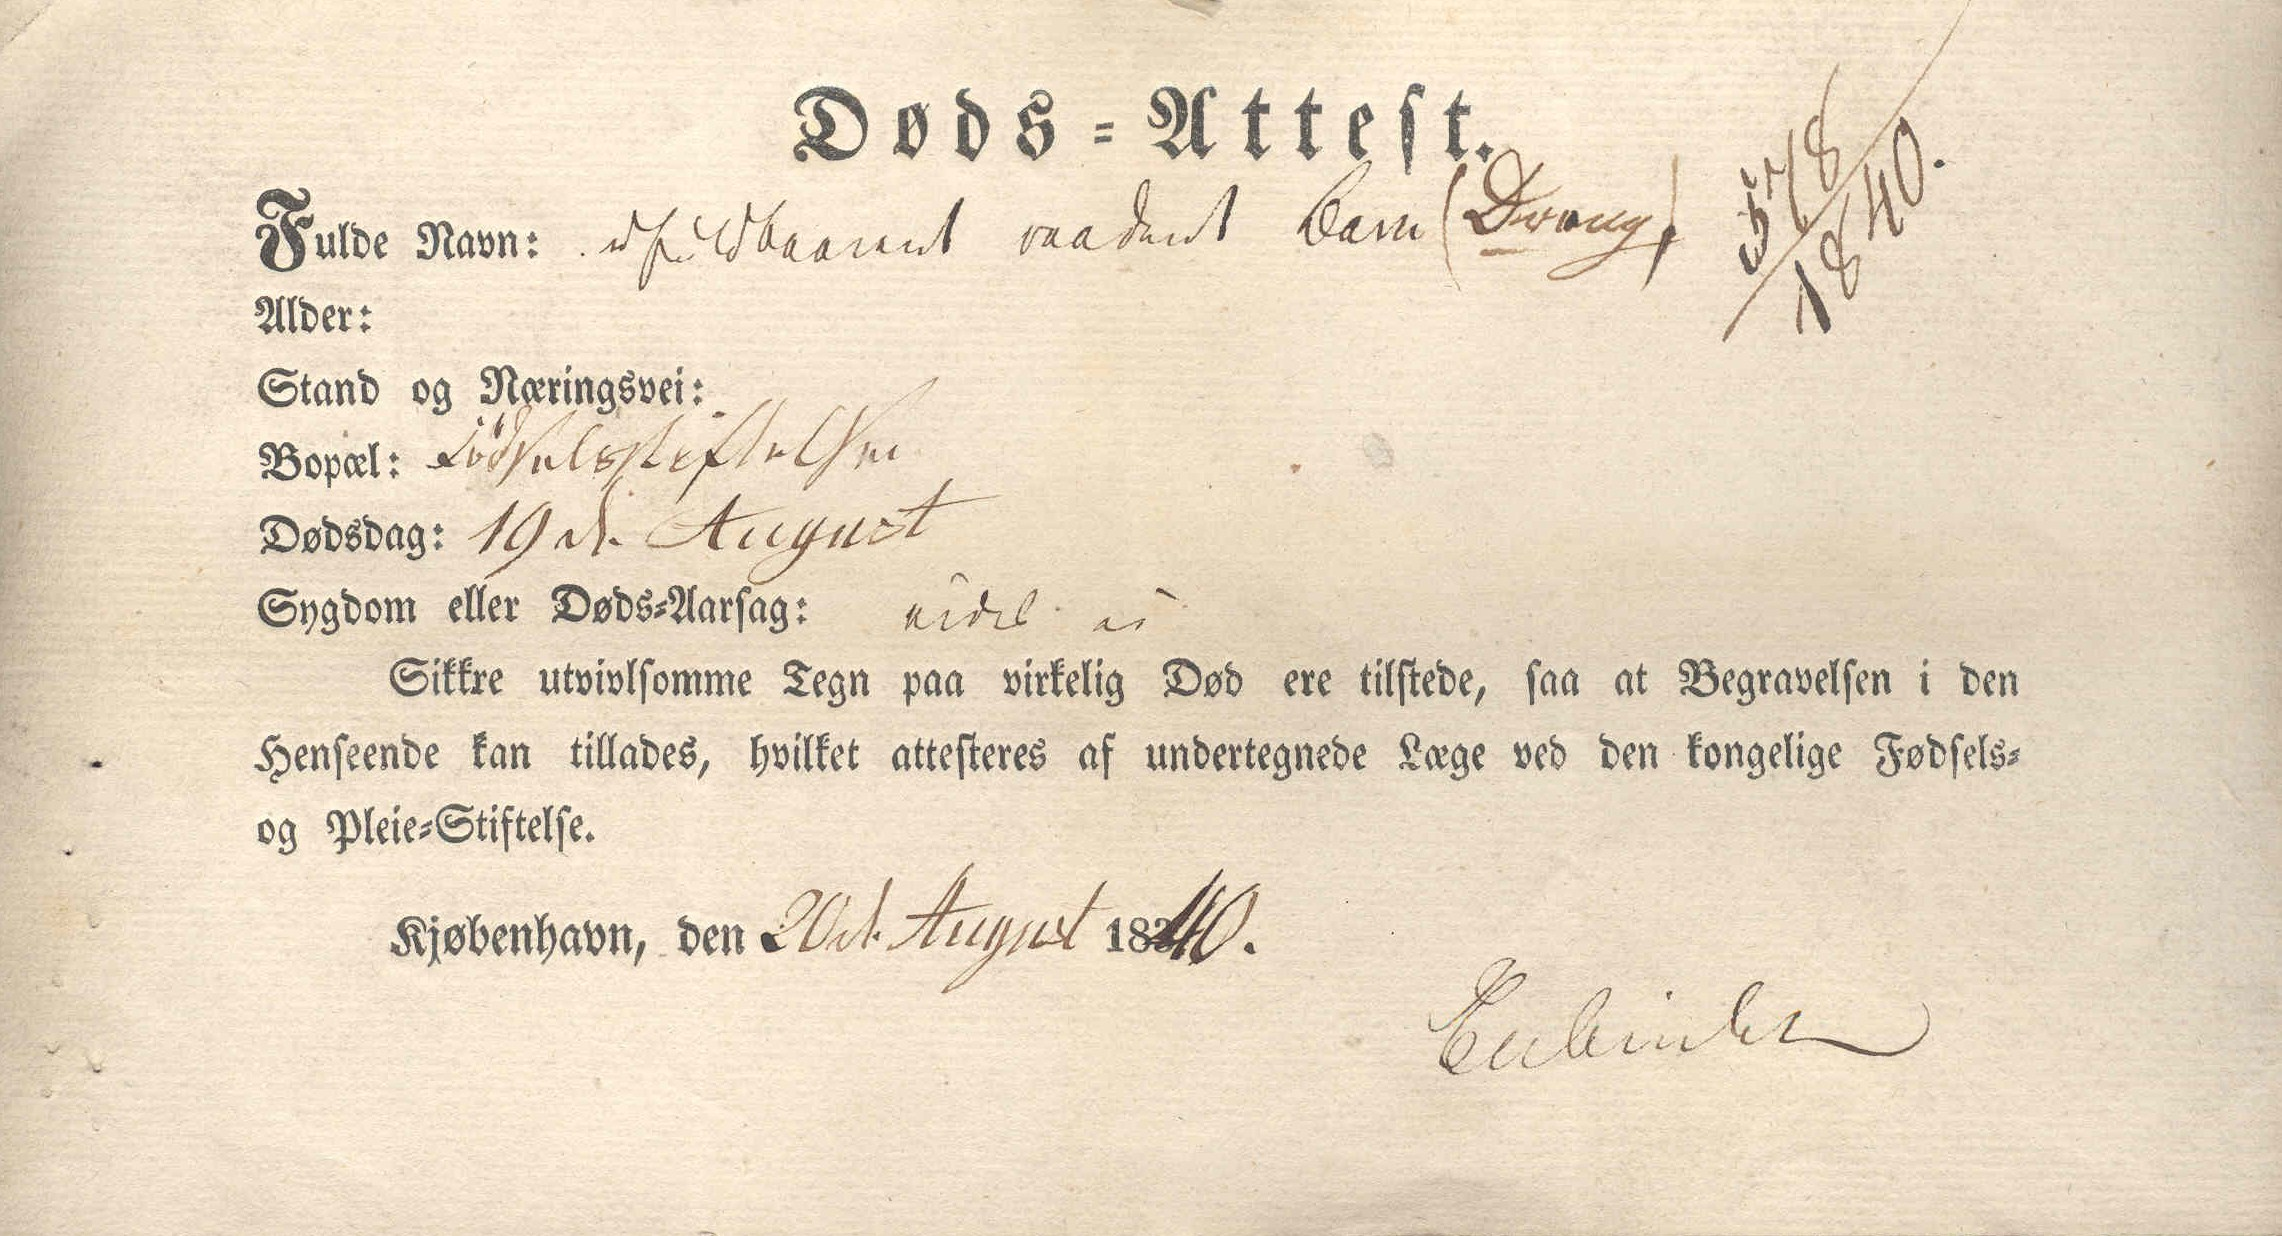 Døds-Attest.
578/1840.
Fulde Navn: ufuldbaarent raadent Barn (Dreng)
Alder:
Stand og Næringsvei:
Bopæl: Fødselsstiftelsen
Dødsdag: 19de August
Sygdom eller Døds-Aarsag:
Sikkre utvivlsomme Tegn paa virkelig Død ere tilstede, saa at Begravelsen i den
Henseende kan tillades, hvilket attesteres af undertegnede Læge ved den kongelige Fødsels-
og Pleie-Stiftelse.
Kjøbenhavn, den 20de August 1840.